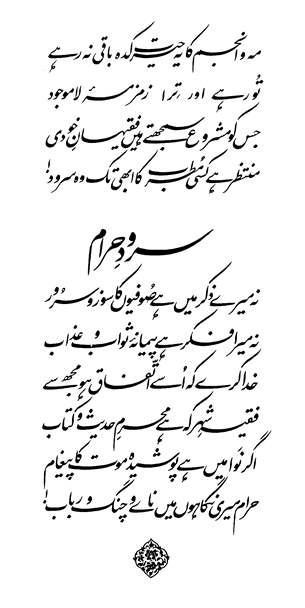 مہ و انجم کا یہ حیرت کدہ باقی نہ رہے
تو رہے اور ترا زمزمۂ لا موجود
جس کو مشروع سمجھتے ہیں فقیہانِ خودی
منتظر ہے کسی مُطرب کا ابھی تک وہ سرود!
سرودِ حرام
نہ میرے ذکر میں ہے صُوفیوں کا سوز و سُرور
نہ میرا فکر ہے پیمانۂ ثواب و عذاب
خدا کرے کہ اُسے اتّفاق ہو مجھ سے
فقیہِ شہر کہ ہے محرمِ حدیث و کتاب
اگر نوا میں ہے پوشیدہ موت کا پیغام
حرام میری نگاہوں میں ناے و چنگ و رباب!